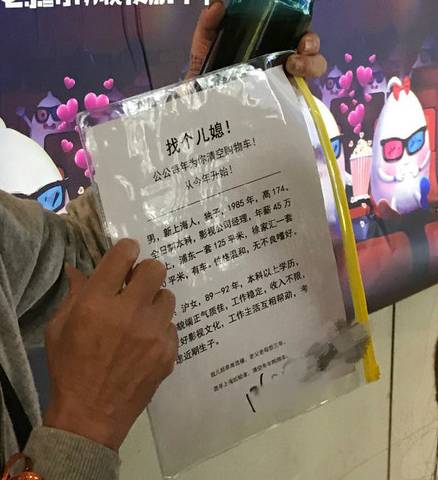 找个儿媳！
公公每年为你清空购物车！
从今年开始！
男，新上海人，独子，1985年，高174，
全日制本科，影视公司经理，年薪45万
上，浦东一套125平米，徐家汇一套
0平米，有车。性格温和，无不良嗜好。
沪女，89-92年，本科以上学历，
貌端正气质佳，工作稳定，收入不限，
好影视文化，工作生活互相帮助，考
近期生子。